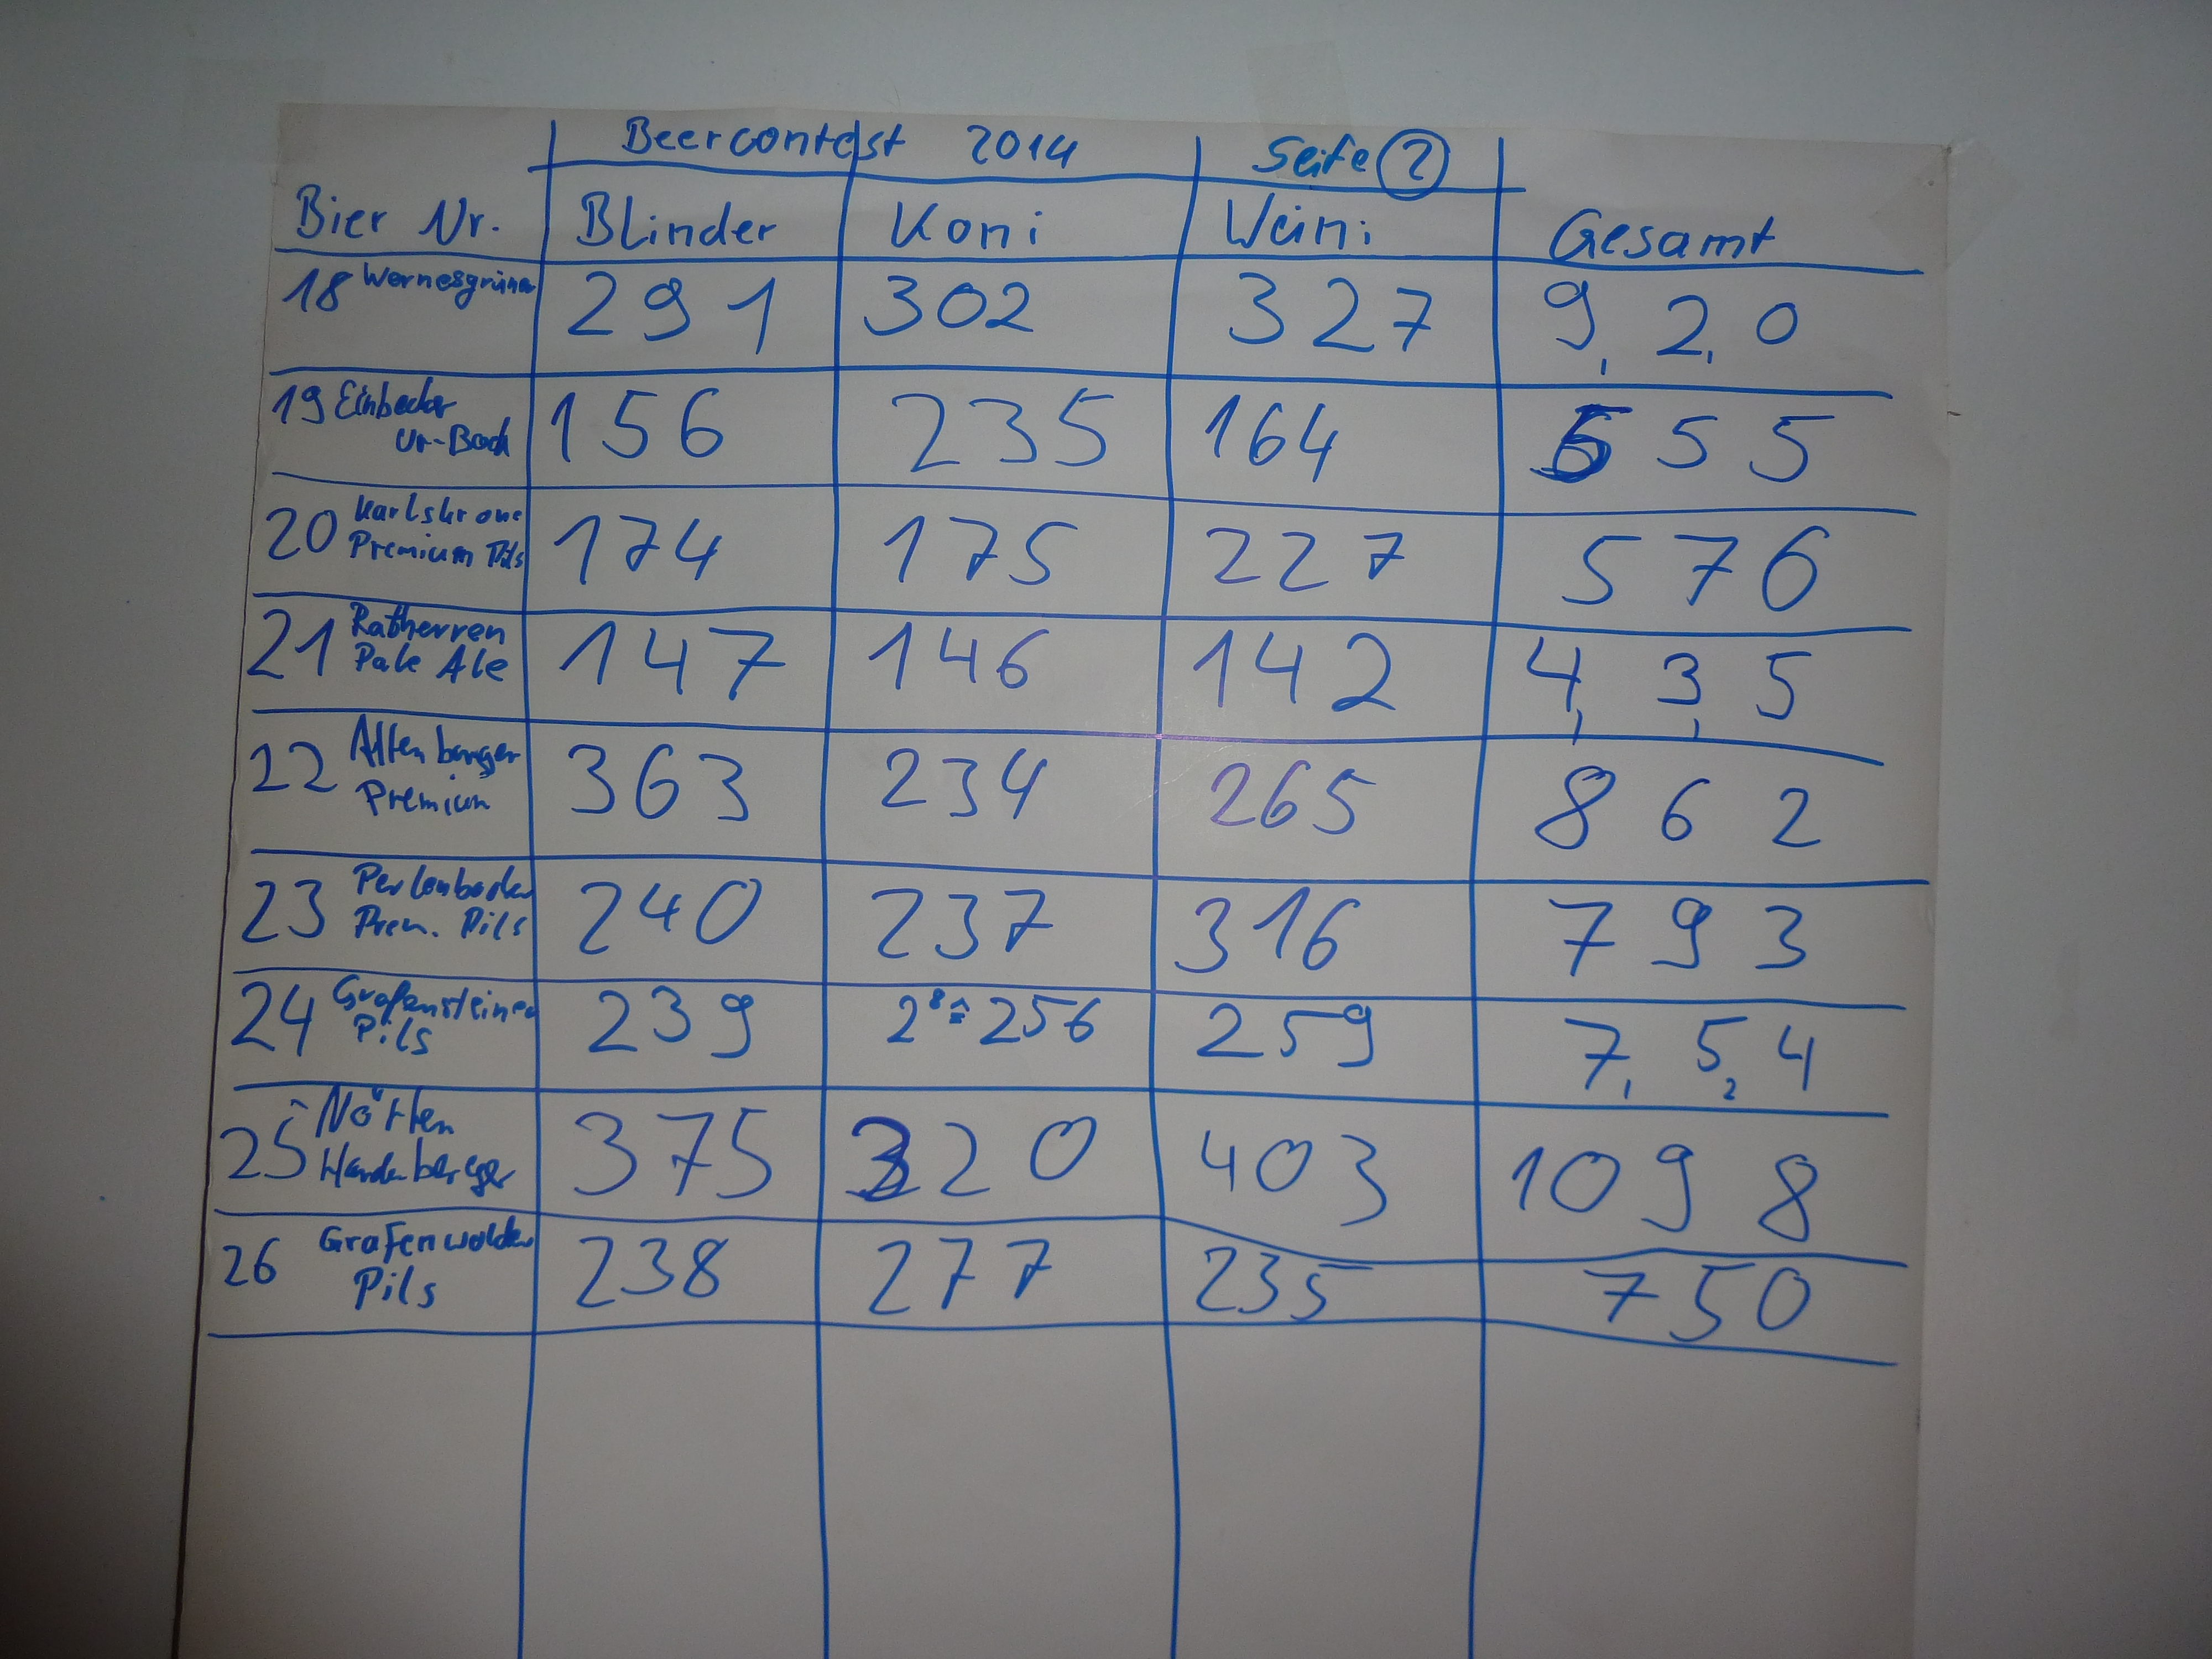 Beercontest 2014 Seite 2
Bier Nr. Blinder Koni Weini Gesamt
18 Wernesgrüner 291 302 327 9 2 0
19 Einbecker 156 235 164 5 5 5
Ur-Bock
20 Karlskrone 174 175 227 5 7 6
Premium Pils
21 Ratherren 147 146 142 4 3 5
Pale Ale
22 Altenburger 363 234 265 8 6 2
Premium
23 Perlenbacher 240 237 316 7 9 3
Prem. Pils
24 Grafensteiner 239 2⁸≙256 259 7 5 4
Pils
25 Nörten 375 320 403 10 9 8
Hardenberger
26 Grafenwalder 238 277 235 750
Pils